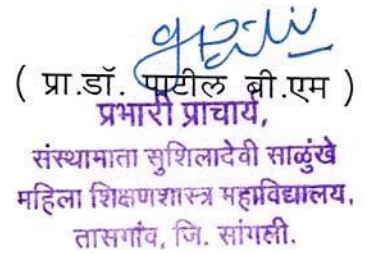 ( प्रा.डॉ. पाटील बी.एम )
प्रभारी प्राचार्य,
संस्थामाता सुशिलादेवी साळुंखे
महिला शिक्षणशास्त्र महाविद्यालय,
तासगांव, जि. सांगली.